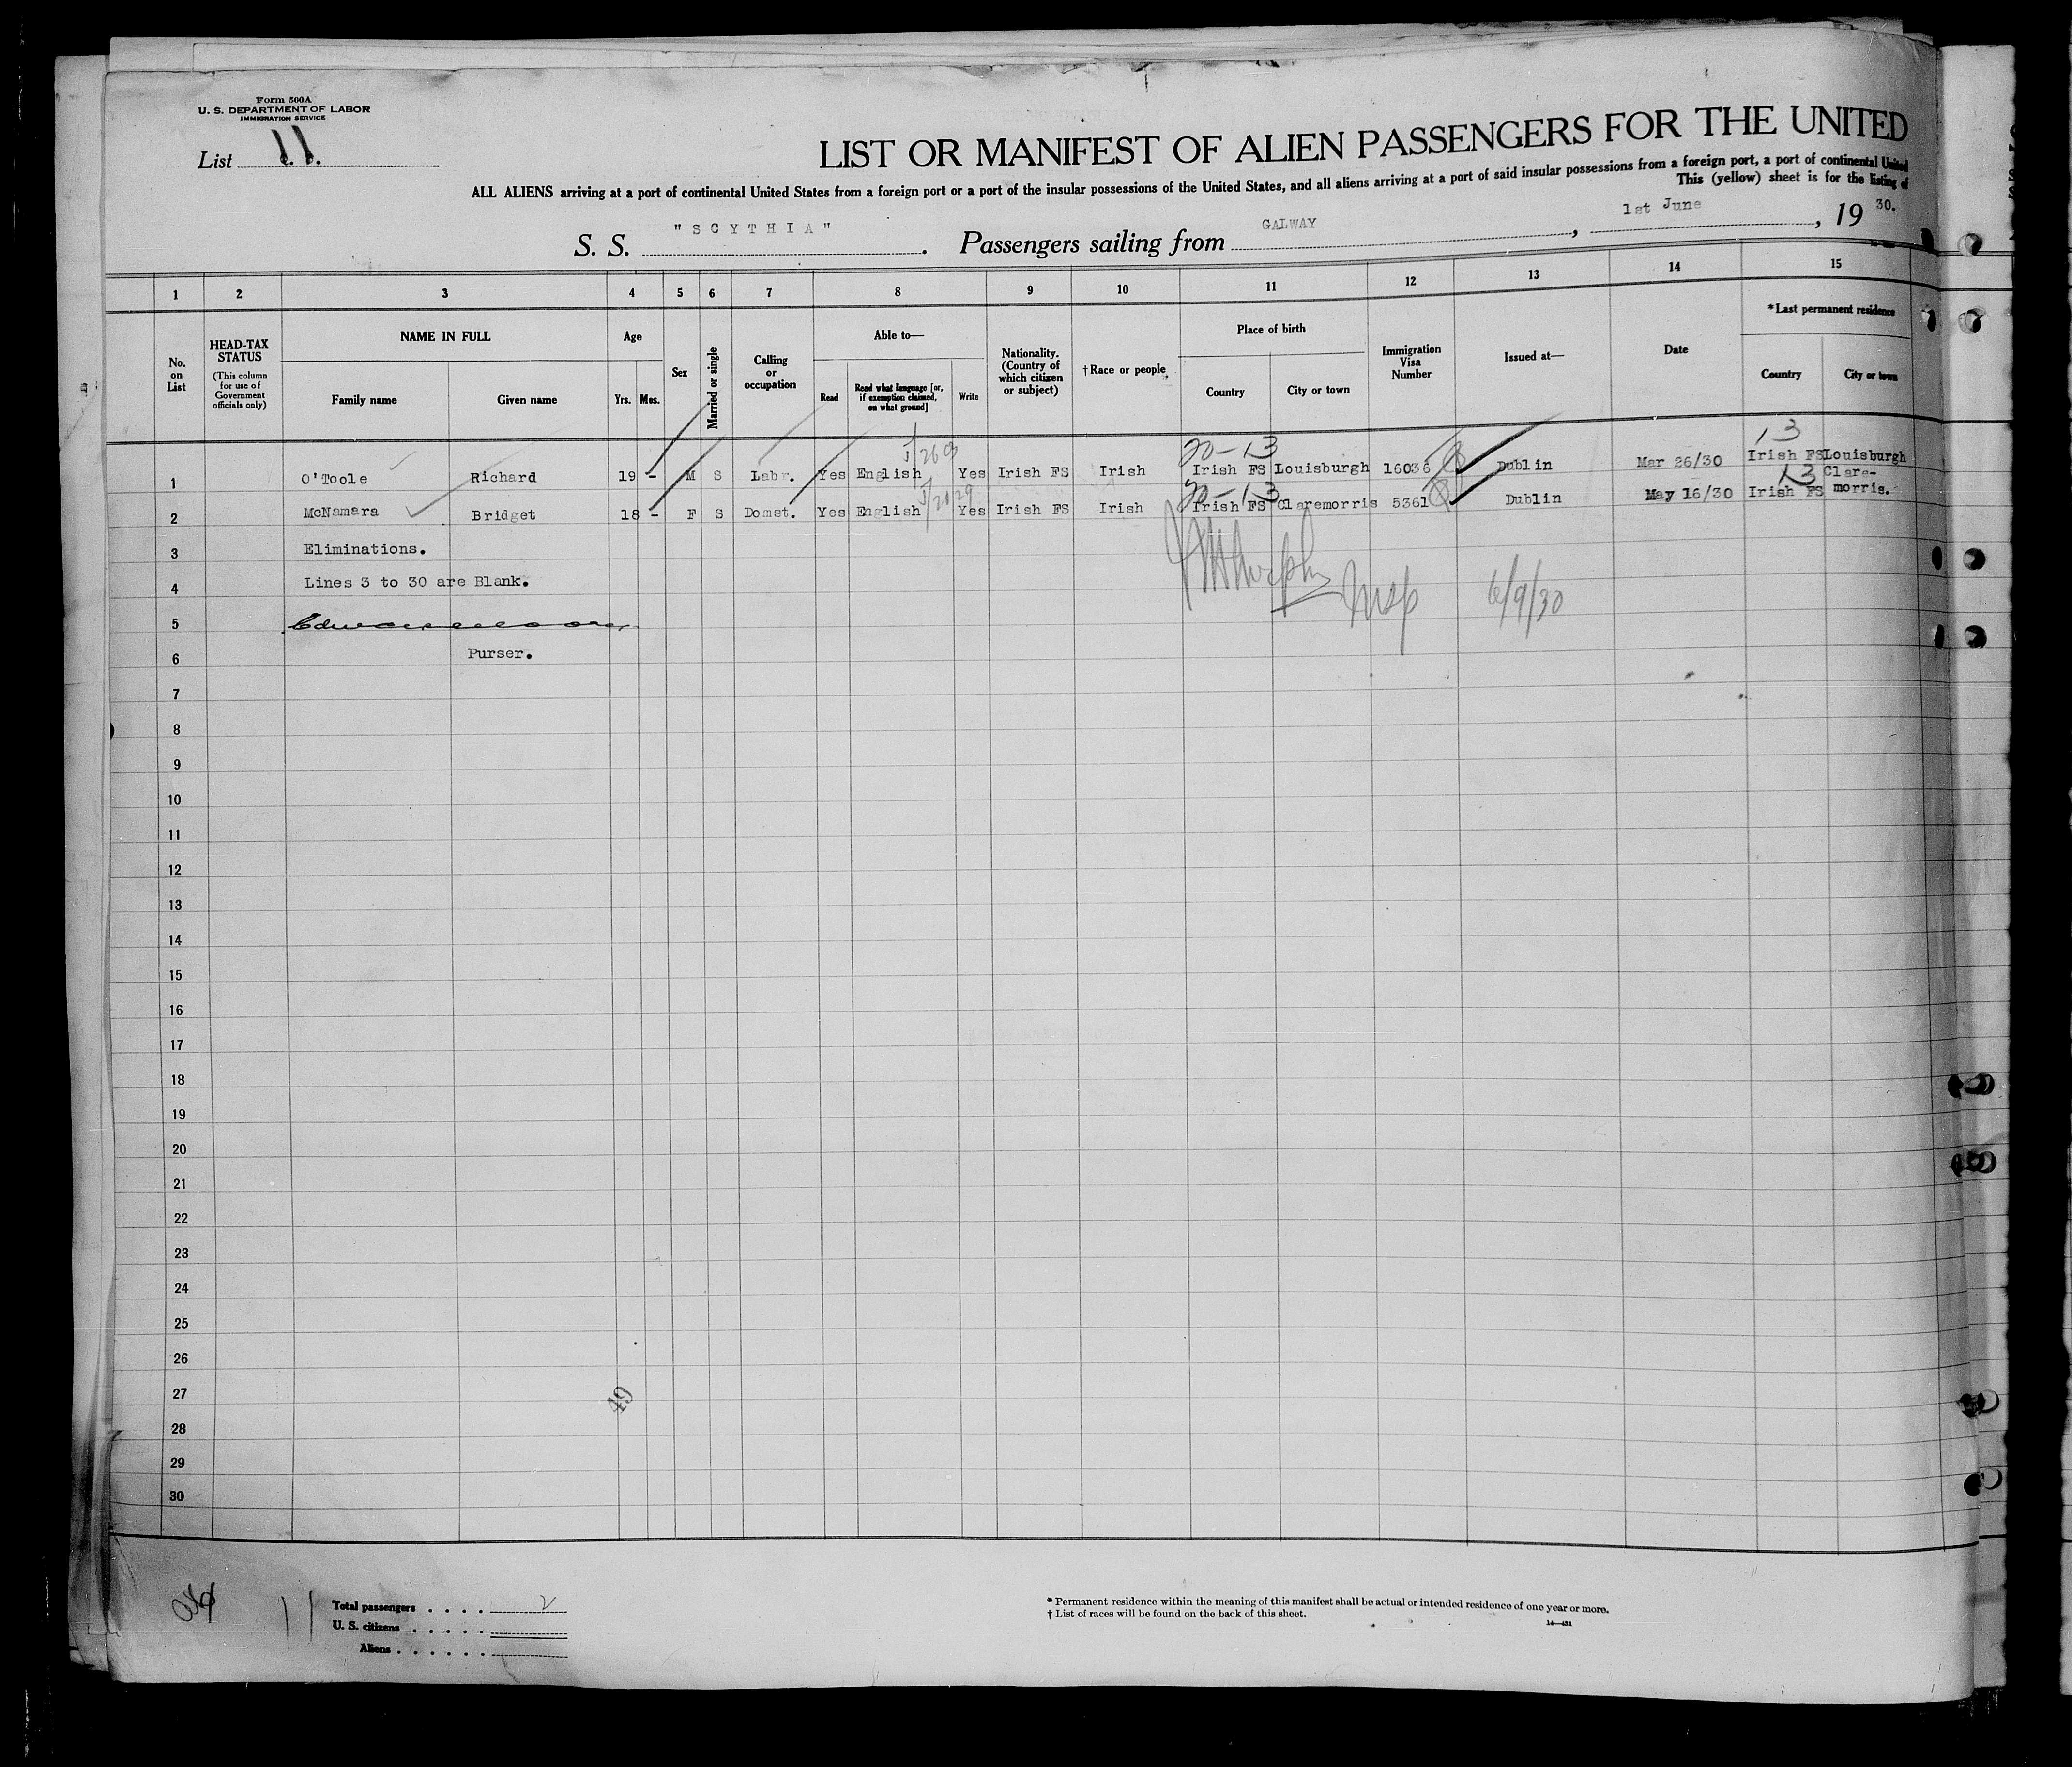 Form 500A
U. S. DEPARTMENT OF LABOR
IMMIGRATION SERVICE
List 11.
LIST OR MANIFEST OF ALIEN PASSENGERS FOR THE UNITED
ALL ALIENS arriving at a port of continental United States from a foreign port or a port of the insular possessions of the United States, and all aliens arriving at a port of said insular possessions from a foreign port, a port of continental United
This (yellow) sheet is for the listing of
S. S. "SCYTHIA". Passengers sailing from GALWAY, 1st June, 19 30.
1 2 3 4 5 6 7 8 9 10 11 12 13 14 15
No. on List
HEAD-TAX STATUS (This column for use of Government officials only)
NAME IN FULL
Family name Given name
Age
Yrs. Mos.
Sex
Married or single
Calling or occupation
Able to—
Read Read what language [or, if exemption claimed, on what ground] Write
Nationality. (Country of which citizen or subject)
† Race or people
Place of birth
Country City or town
Immigration Visa Number
Issued at—
Date
* Last permanent residence
Country City or town
20-13 13
1 O'Toole Richard 19 - M S Labr. Yes English Yes Irish FS Irish Irish FS Louisburgh 16036 Dublin Mar 26/30 Irish FS Louisburgh
20-13 13
2 McNamara Bridget 18 - F S Domst. Yes English Yes Irish FS Irish Irish FS Claremorris 5361 Dublin May 16/30 Irish FS Clare-
morris.
3 Eliminations.
4 Lines 3 to 30 are Blank.
Insp 6/9/30
5
6 Purser.
7
8
9
10
11
12
13
14
15
16
17
18
19
20
21
22
23
24
25
26
27
49
28
29
30
Total passengers . . . . 2
U. S. citizens . . . . .
Aliens . . . . . .
* Permanent residence within the meaning of this manifest shall be actual or intended residence of one year or more.
† List of races will be found on the back of this sheet.